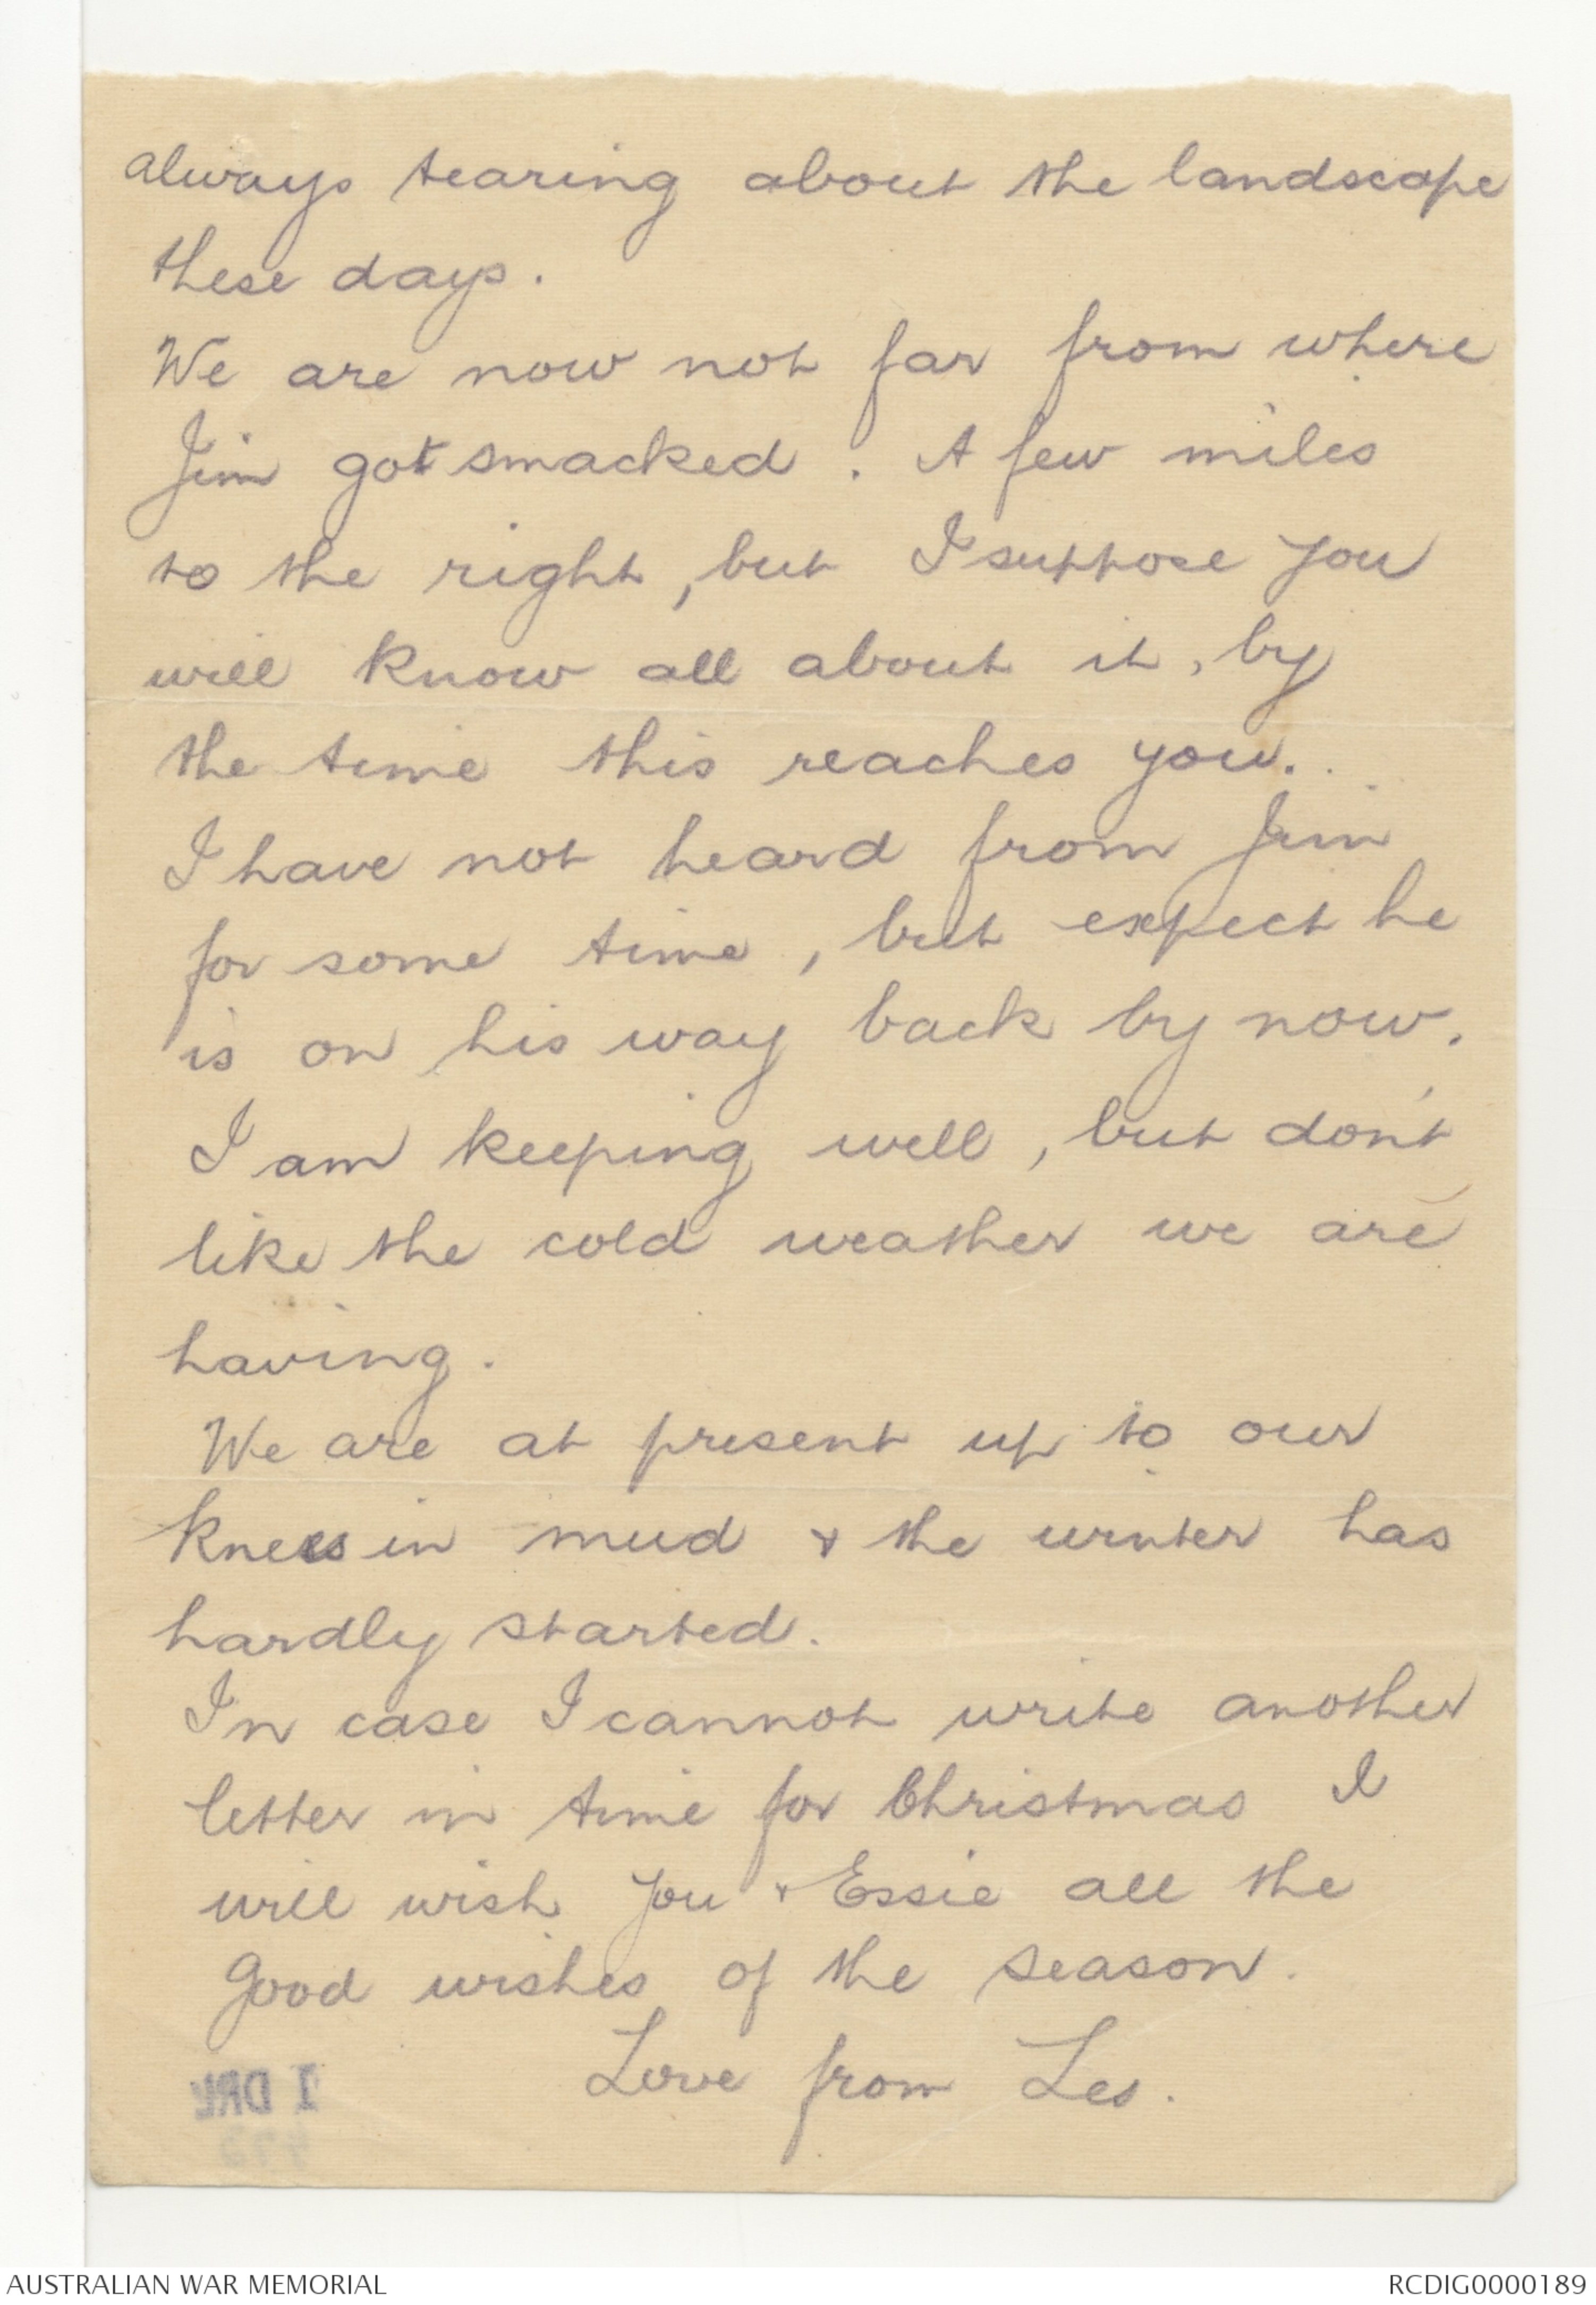 always tearing about the landscape
these days.
We are now not far from where
Jim got smacked. A few miles
to the right, but I suppose you
will know all about it, by
the time this reaches you.
I have not heard from Jim
for some time, but expect he
is on his way back by now.
I am keeping well, but don't
like the cold weather we are
having.
We are at present up to our
knees in mud & the winter has
hardly started.
In case I cannot write another
letter in time for Christmas I
will wish you & Essie all the
good wishes of the season.
Love from Les.
1 DRL
AUSTRALIAN WAR MEMORIAL
RCDIG0000189